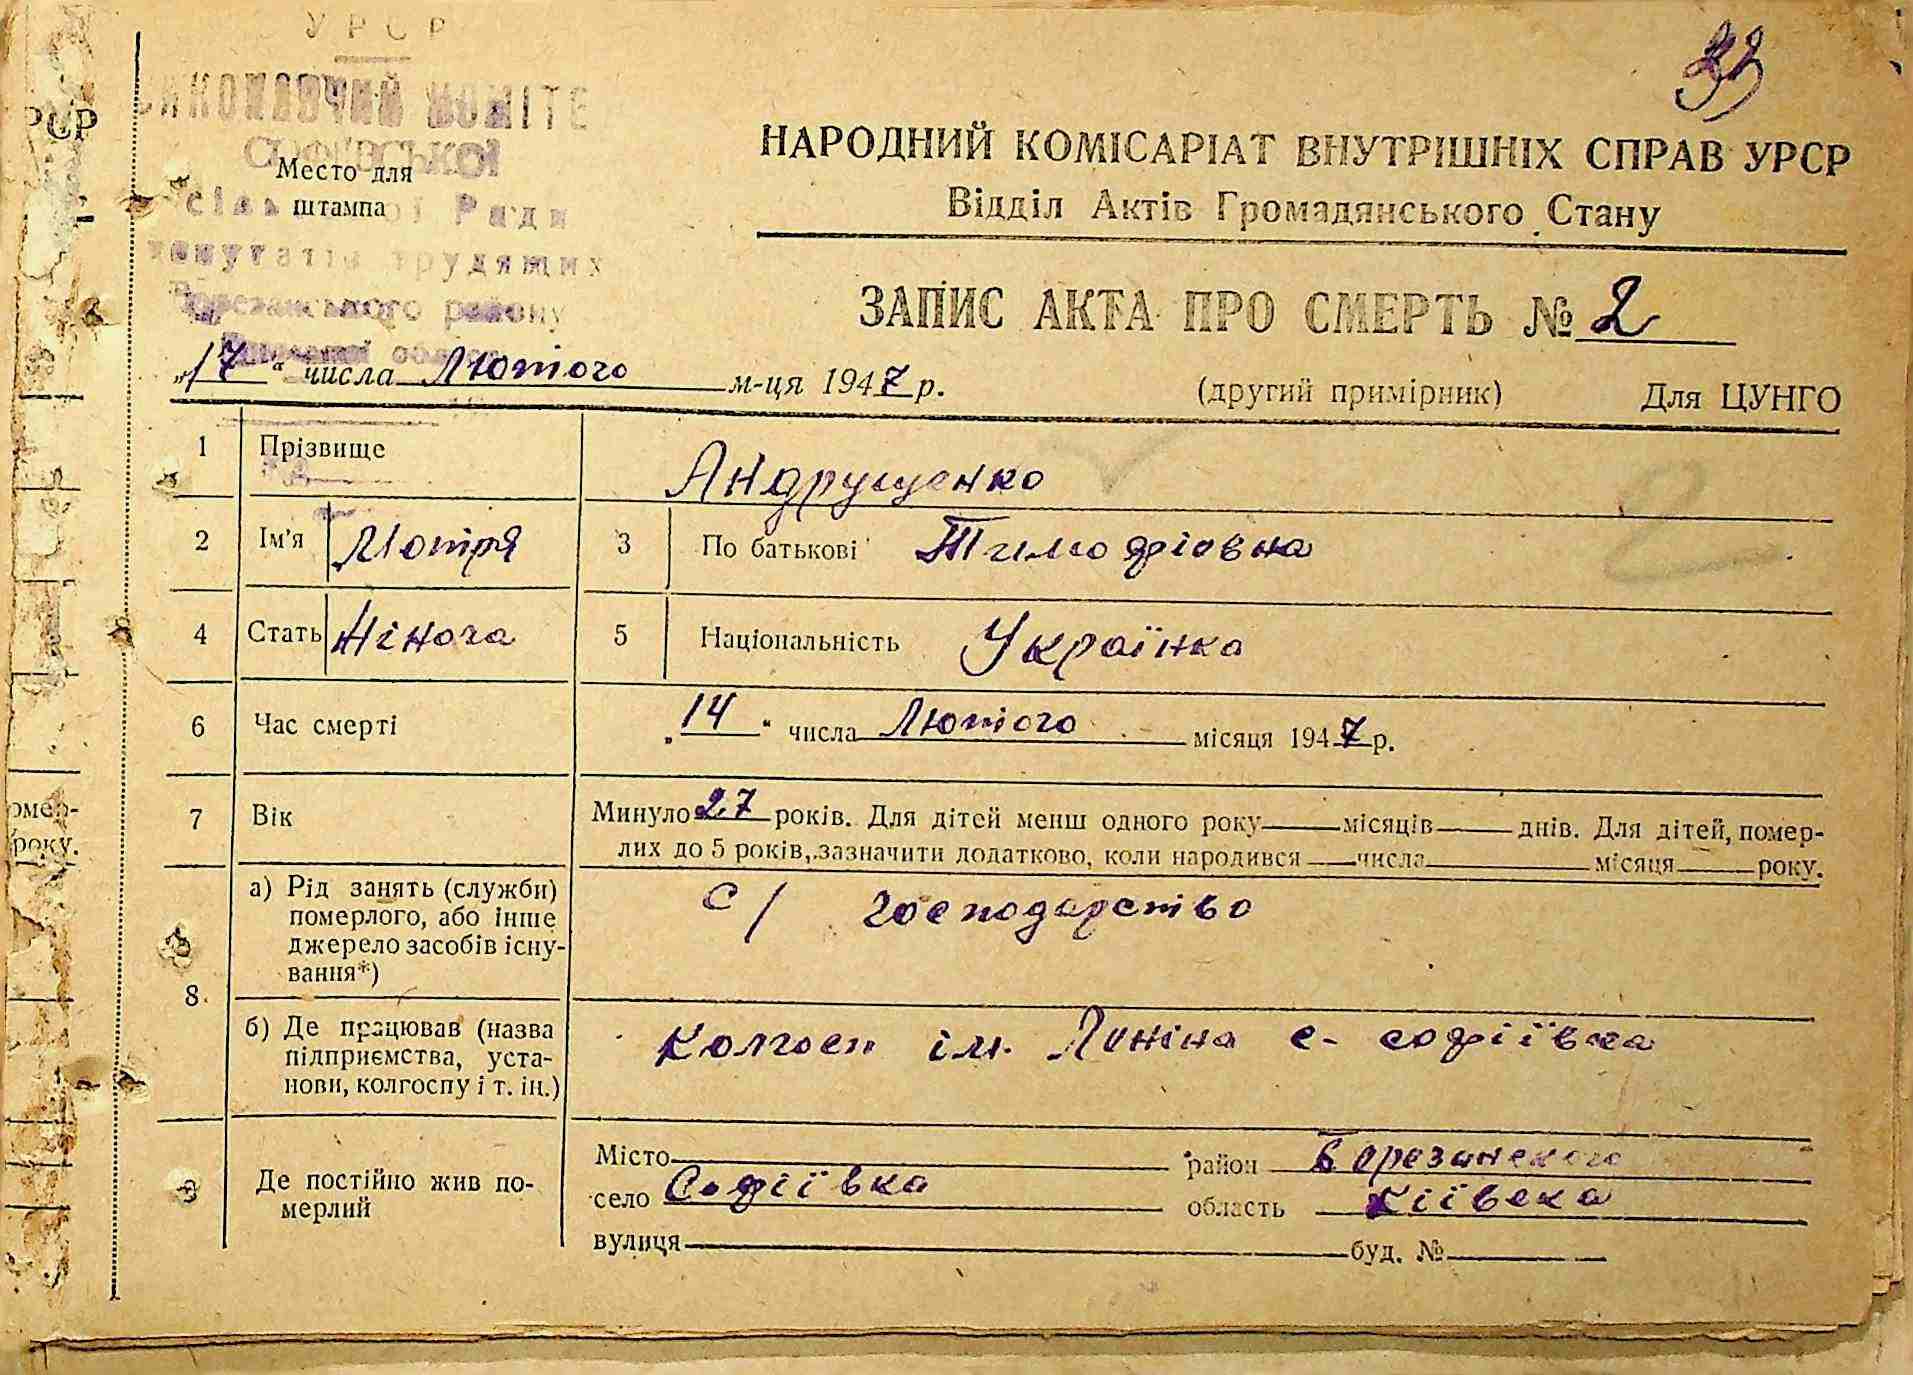 УРСР
39
ВИКОНАВЧИЙ КОМІТЕ
СОФІЇВСЬКОЇ
Место для
штампа
сіль ої Ради
депутатів трудящих
Березанського району
області
РСР
НАРОДНИЙ КОМІСАРІАТ ВНУТРІШНІХ СПРАВ УРСР
Відділ Актів Громадянського Стану
ЗАПИС АКТА ПРО СМЕРТЬ № 2
„17“ числа Лютого м-ця 1947 р.
(другий примірник) Для ЦУНГО
1 Прізвище Андрущенко
2 Ім'я Мотря 3 По батькові Тимофіовна
4 Стать Жіноча 5 Національність Українка
6 Час смерті „14“ числа Лютого місяця 1947 р.
7 Вік Минуло 27 років. Для дітей менш одного року місяців днів. Для дітей, помер-
лих до 5 років, зазначити додатково, коли народився числа місяця року.
омер-
року.
8. а) Рід занять (служби)
померлого, або інше
джерело засобів існу-
вання*)
с/ господарство
б) Де працював (назва
підприємства, уста-
нови, колгоспу і т. ін.)
Колгосп ім. Леніна с. Софіївка
9 Де постійно жив по-
мерлий
Місто район Березанского
село Софіївка область Кіївска
вулиця буд. №